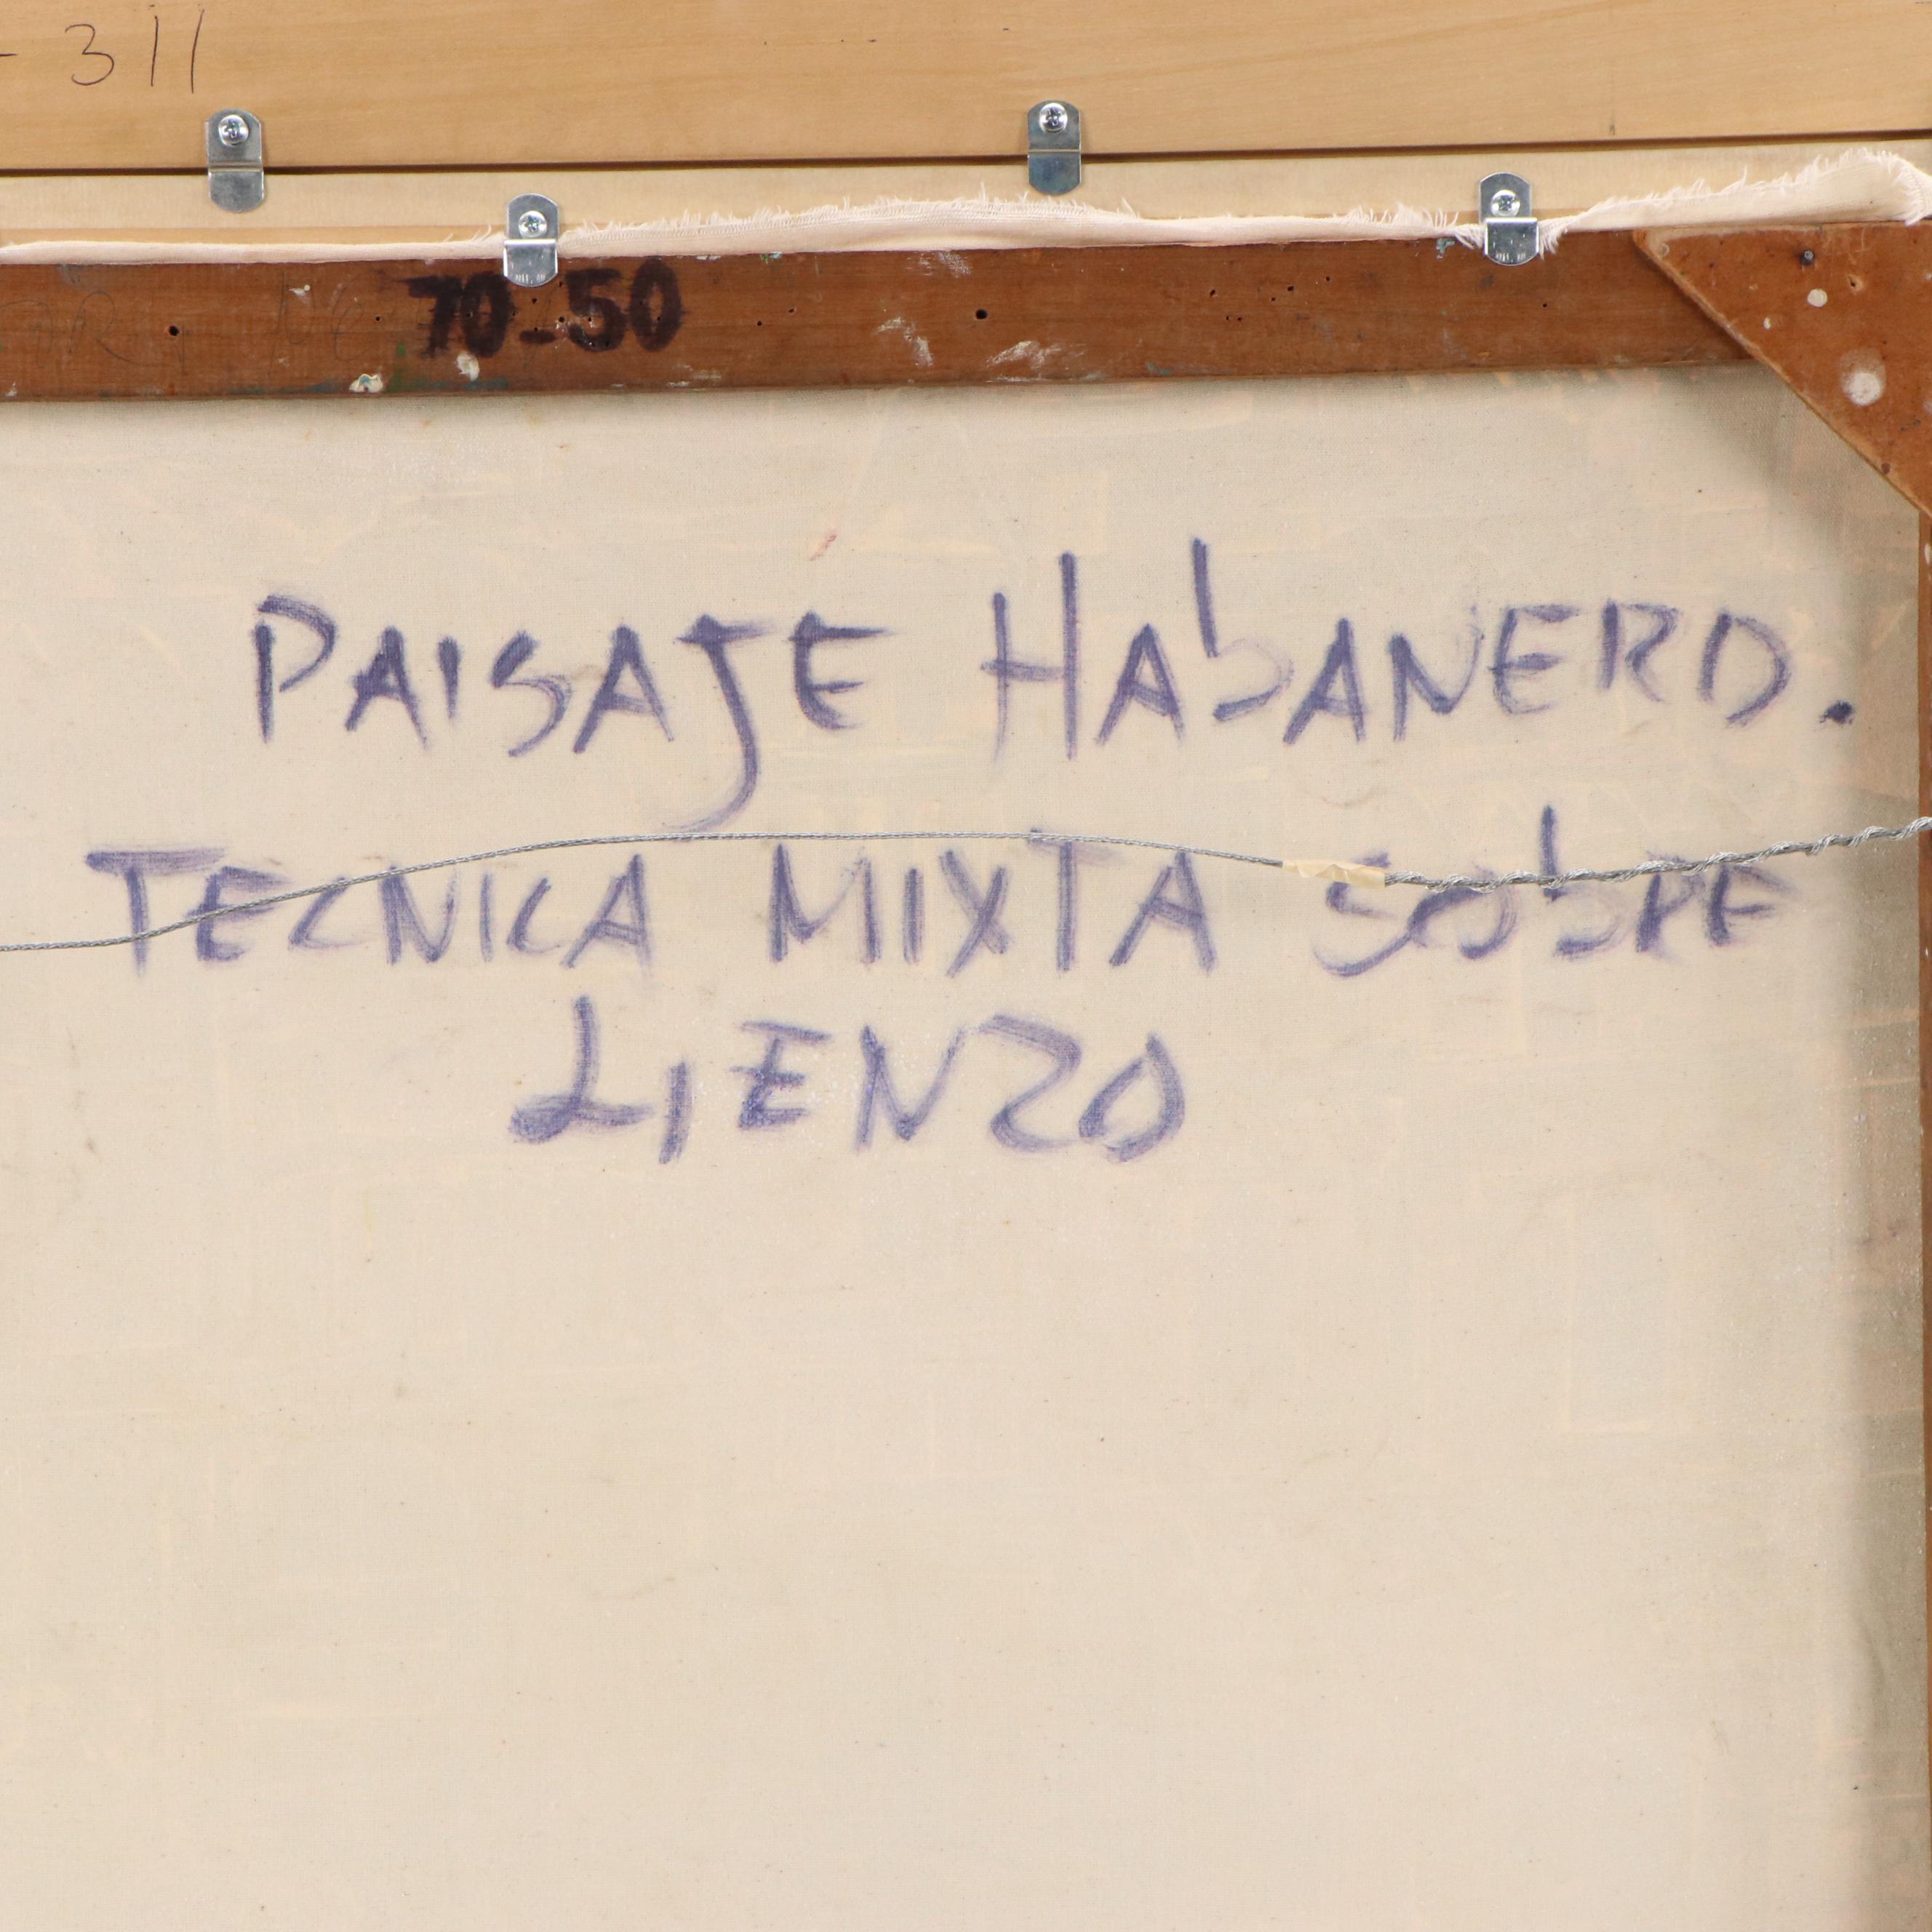 - 311
70-50
PAISAJE HAbANERO.
TECNICA MIXTA SObRE
LIENZO